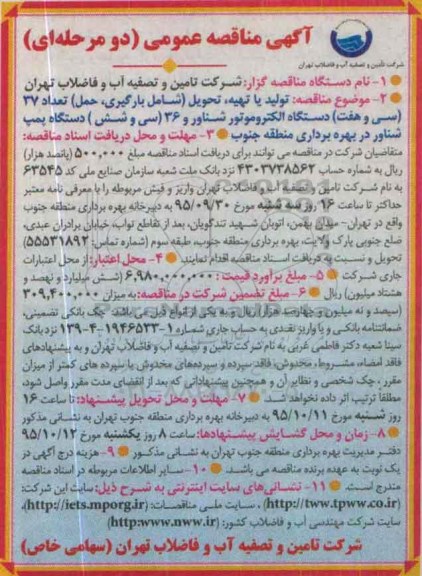 آگهی مناقصه عمومی (دو مرحله‌ای)
شرکت تأمین و تصفیه آب و فاضلاب تهران
۱- نام دستگاه مناقصه گزار: شرکت تامین و تصفیه آب و فاضلاب تهران
۲- موضوع مناقصه: تولید یا تهیه، تحویل (شامل بارگیری، حمل) تعداد ۳۷
(سی و هفت) دستگاه الکتروموتور شناور و ۳۶ (سی و شش) دستگاه پمپ
شناور در بهره برداری منطقه جنوب ۳- مهلت و محل دریافت اسناد مناقصه:
متقاضیان شرکت در مناقصه می توانند برای دریافت اسناد مناقصه مبلغ ۵۰۰,۰۰۰ (پانصد هزار)
ریال به شماره حساب ۴۳۰۳۷۳۸۵۶۲ نزد بانک ملت شعبه سازمان صنایع ملی کد ۶۳۵۴۵
به نام شرکت تامین و تصفیه آب و فاضلاب تهران واریز و فیش مربوطه را با معرفی نامه معتبر
حداکثر تا ساعت ۱۶ روز سه شنبه مورخ ۹۵/۰۹/۳۰ به دبیرخانه بهره برداری منطقه جنوب
واقع در تهران- میدان بهمن، اتوبان شهید تندگویان، بعد از تقاطع نواب، خیابان برادران عبدی،
ضلع جنوبی پارک ولایت، بهره برداری منطقه جنوب، طبقه سوم (شماره تماس: ۵۵۵۳۱۸۹۲)
تحویل و نسبت به دریافت اسناد مناقصه اقدام نمایند ۴- محل اعتبار: از محل اعتبارات
جاری شرکت ۵- مبلغ برآورد قیمت: ۶,۹۸۰,۰۰۰,۰۰۰ (شش میلیارد و نهصد و
هشتاد میلیون) ریال ۶- مبلغ تضمین شرکت در مناقصه: به میزان ۳۰۹,۴۰۰,۰۰۰
(سیصد و نه میلیون و چهارصد هزار) ریال و به یکی از انواع ذیل می باشد. چک بانکی تضمینی،
ضمانتنامه بانکی و یا واریز نقدی به حساب جاری شماره ۱-۱۹۴۶۵۳۳-۴-۱۳۹ نزد بانک
سینا شعبه دکتر فاطمی غربی به نام شرکت تامین و تصفیه آب و فاضلاب تهران و به پیشنهادهای
فاقد امضاء، مشروط، مخدوش، فاقد سپرده و سپرده‌های مخدوش یا سپرده های کمتر از میزان
مقرر، چک شخصی و نظایر آن و همچنین پیشنهاداتی که بعد از انقضای مدت مقرر واصل شود،
مطلقا ترتیب اثر داده نخواهد شد. ۷- مهلت و محل تحویل پیشنهاد: تا ساعت ۱۶
روز شنبه مورخ ۹۵/۱۰/۱۱ به دبیرخانه بهره برداری منطقه جنوب تهران به نشانی مذکور
۸- زمان و محل گشایش پیشنهادها: ساعت ۸ روز یکشنبه مورخ ۹۵/۱۰/۱۲
دفتر مدیریت بهره برداری منطقه جنوب تهران به نشانی مذکور ۹- هزینه درج آگهی در
یک نوبت به عهده برنده مناقصه می باشد. ۱۰- سایر اطلاعات مربوطه در اسناد مناقصه
مندرج است. ۱۱- نشانی‌های سایت اینترنتی به شرح ذیل: سایت این شرکت:
(http://tww.tpww.co.ir)، سایت ملی مناقصات: (http://iets.mporg.ir)،
سایت شرکت مهندسی آب و فاضلاب کشور: (http:www.nww.ir)
شرکت تامین و تصفیه آب و فاضلاب تهران (سهامی خاص)